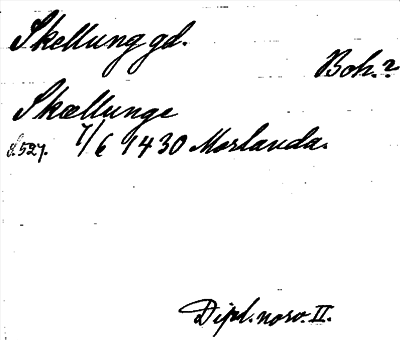 Skellung gd.
Boh.?
Skællunge
s. 527. 7/6 1430 Morlanda.
Dipl. norv. II.